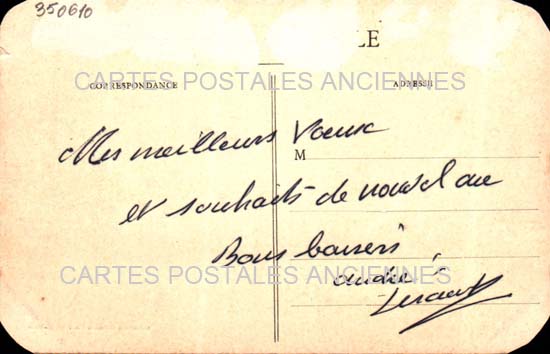 350610
LE
CARTES POSTALES ANCIENNES
CORRESPONDANCE
ADRESSE
Mes meilleurs Voeux
M
et souhaits de nouvel an
Bons baisers
andré
CARTES POSTALES ANCIENNES